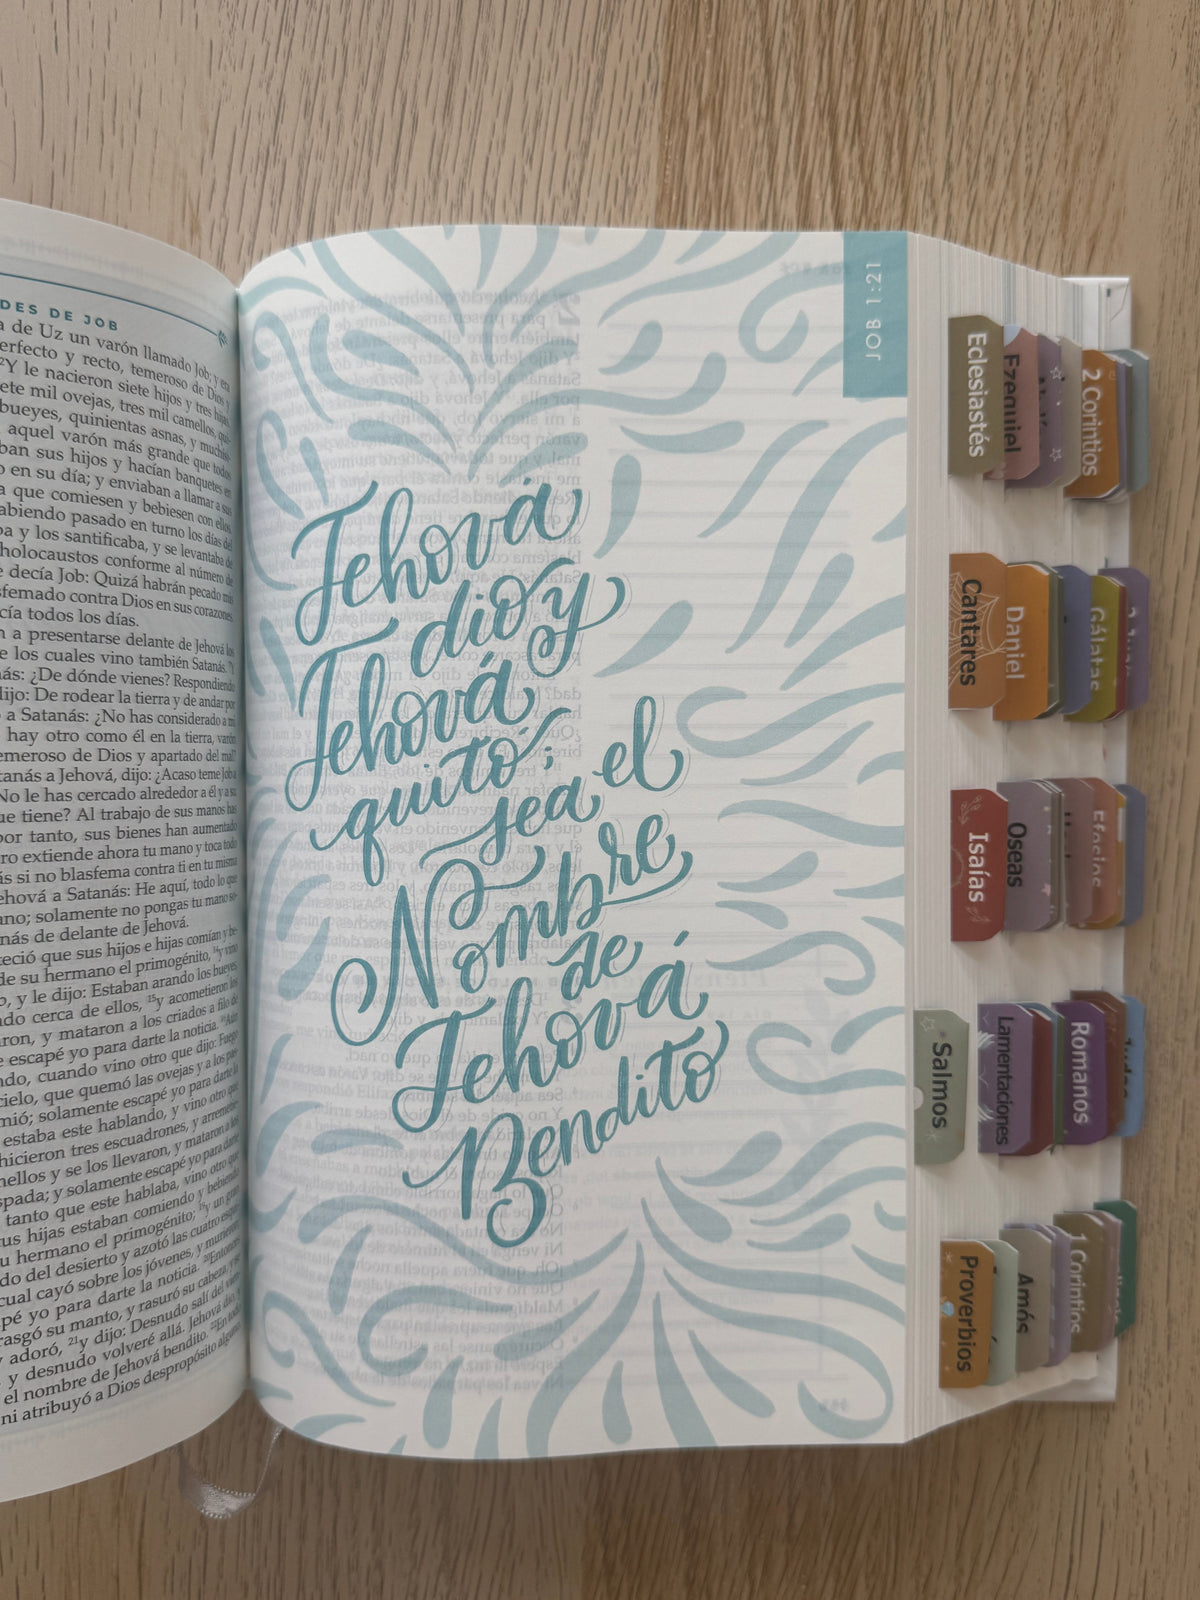 DES DE JOB
de Uz un varón llamado Job; y era
perfecto y recto, temeroso de Dios y
Y le nacieron siete hijos y tres hijas.
siete mil ovejas, tres mil camellos, qui-
bueyes, quinientas asnas, y muchí-
aquel varón más grande que todos
ban sus hijos y hacían banquetes en
en su día; y enviaban a llamar a sus
a que comiesen y bebiesen con ellos.
habiendo pasado en turno los días del
ba y los santificaba, y se levantaba de
holocaustos conforme al número de
decía Job: Quizá habrán pecado mis
sfemado contra Dios en sus corazones.
cía todos los días.
n a presentarse delante de Jehová los
e los cuales vino también Satanás.
nás: ¿De dónde vienes? Respondiendo
dijo: De rodear la tierra y de andar por
a Satanás: ¿No has considerado a mi
hay otro como él en la tierra, varón
temeroso de Dios y apartado del mal?
tanás a Jehová, dijo: ¿Acaso teme Job a
No le has cercado alrededor a él y a su
ue tiene? Al trabajo de sus manos has
por tanto, sus bienes han aumentado
ero extiende ahora tu mano y toca todo
ás si no blasfema contra ti en tu misma
ehová a Satanás: He aquí, todo lo que
ano; solamente no pongas tu mano so-
nás de delante de Jehová.
teció que sus hijos e hijas comían y be-
de su hermano el primogénito, 14y vino
o, y le dijo: Estaban arando los bueyes,
ndo cerca de ellos, 15y acometieron los
ron, y mataron a los criados a filo de
e escapé yo para darte la noticia.
ndo, cuando vino otro que dijo: Fuego
cielo, que quemó las ovejas y a los pas-
mió; solamente escapé yo para darte la
estaba este hablando, y vino otro que
hicieron tres escuadrones, y arremetie-
mellos y se los llevaron, y mataron a los
spada; y solamente escapé yo para darte
tanto que este hablaba, vino otro que
tus hijas estaban comiendo y bebiendo
su hermano el primogénito; 19y un gran
do del desierto y azotó las cuatro esqui-
cual cayó sobre los jóvenes, y murieron;
pé yo para darte la noticia. 20Entonces
rasgó su manto, y rasuró su cabeza, y se
y adoró, 21y dijo: Desnudo salí del vien-
y desnudo volveré allá. Jehová dio, y
el nombre de Jehová bendito. 22En todo
ni atribuyó a Dios despropósito alguno.
JOB 1:21
Jehová
dio y
Jehová
quitó;
sea el
Nombre
de
Jehová
Bendito
Eclesiastés
Ezequiel
2 Corintios
Cantares
Daniel
Gálatas
Isaías
Oseas
Efesios
Salmos
Lamentaciones
Romanos
Judas
Proverbios
Amós
1 Corintios